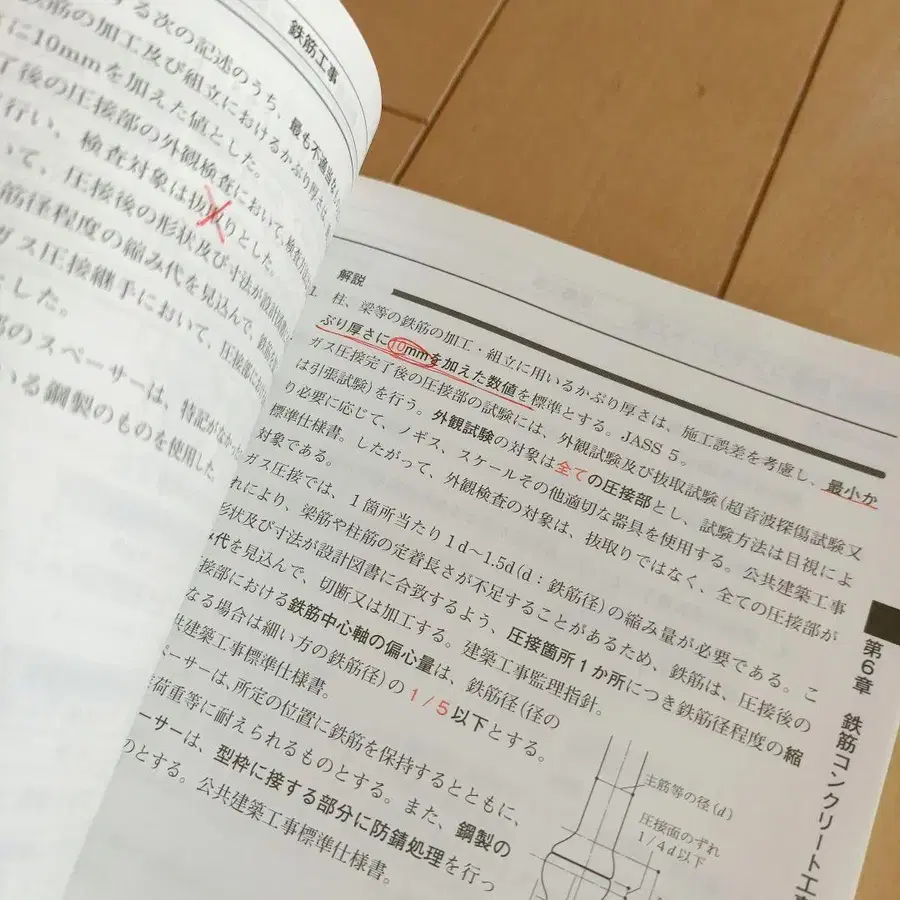 鉄筋工事
する次の記述のうち、最も不適当な
鉄筋の加工及び組立におけるかぶり厚さは
に10mmを加えた値とした。
了後の圧接部の外観検査において、検査方法は
行い、検査対象は抜取りとした。
いて、圧接後の形状及び寸法が設計図書に
筋径程度の縮み代を見込んで、鉄筋を
ガス圧接継手において、圧接部にお
した。
部のスペーサーは、特記がなかった
いる鋼製のものを使用した。
解説
1 柱、梁等の鉄筋の加工・組立に用いるかぶり厚さは、施工誤差を考慮し、最小か
ぶり厚さに10mmを加えた数値を標準とする。JASS 5。
ガス圧接完了後の圧接部の試験には、外観試験及び抜取試験(超音波探傷試験又
は引張試験)を行う。外観試験の対象は全ての圧接部とし、試験方法は目視によ
り必要に応じて、ノギス、スケールその他適切な器具を使用する。公共建築工事
標準仕様書。したがって、外観検査の対象は、抜取りではなく、全ての圧接部が
対象である。
ガス圧接では、1箇所当たり1d~1.5d(d:鉄筋径)の縮み量が必要である。こ
れにより、梁筋や柱筋の定着長さが不足することがあるため、鉄筋は、圧接後の
形状及び寸法が設計図書に合致するよう、圧接箇所1か所につき鉄筋径程度の縮
み代を見込んで、切断又は加工する。建築工事監理指針。
接部における鉄筋中心軸の偏心量は、鉄筋径(径の
なる場合は細い方の鉄筋径)の1/5以下とする。
共建築工事標準仕様書。
ペーサーは、所定の位置に鉄筋を保持するとともに、
荷重等に耐えられるものとする。また、鋼製の
ーサーは、型枠に接する部分に防錆処理を行っ
のとする。公共建築工事標準仕様書。
主筋等の径(d)
圧接面のずれ
1/4d以下
第6章 鉄筋コンクリート工事